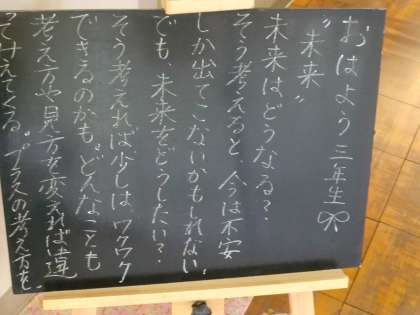 おはよう三年生
"未来"
未来はどうなる?
そう考えると、今は不安
しか出てこないかもしれない。
でも、未来をどうしたい?
そう考えれば少しは、ワクワク
できるのかも。どんなことも
考え方や見方を変えれば違
ってみえてくる。プラスの考え方を。